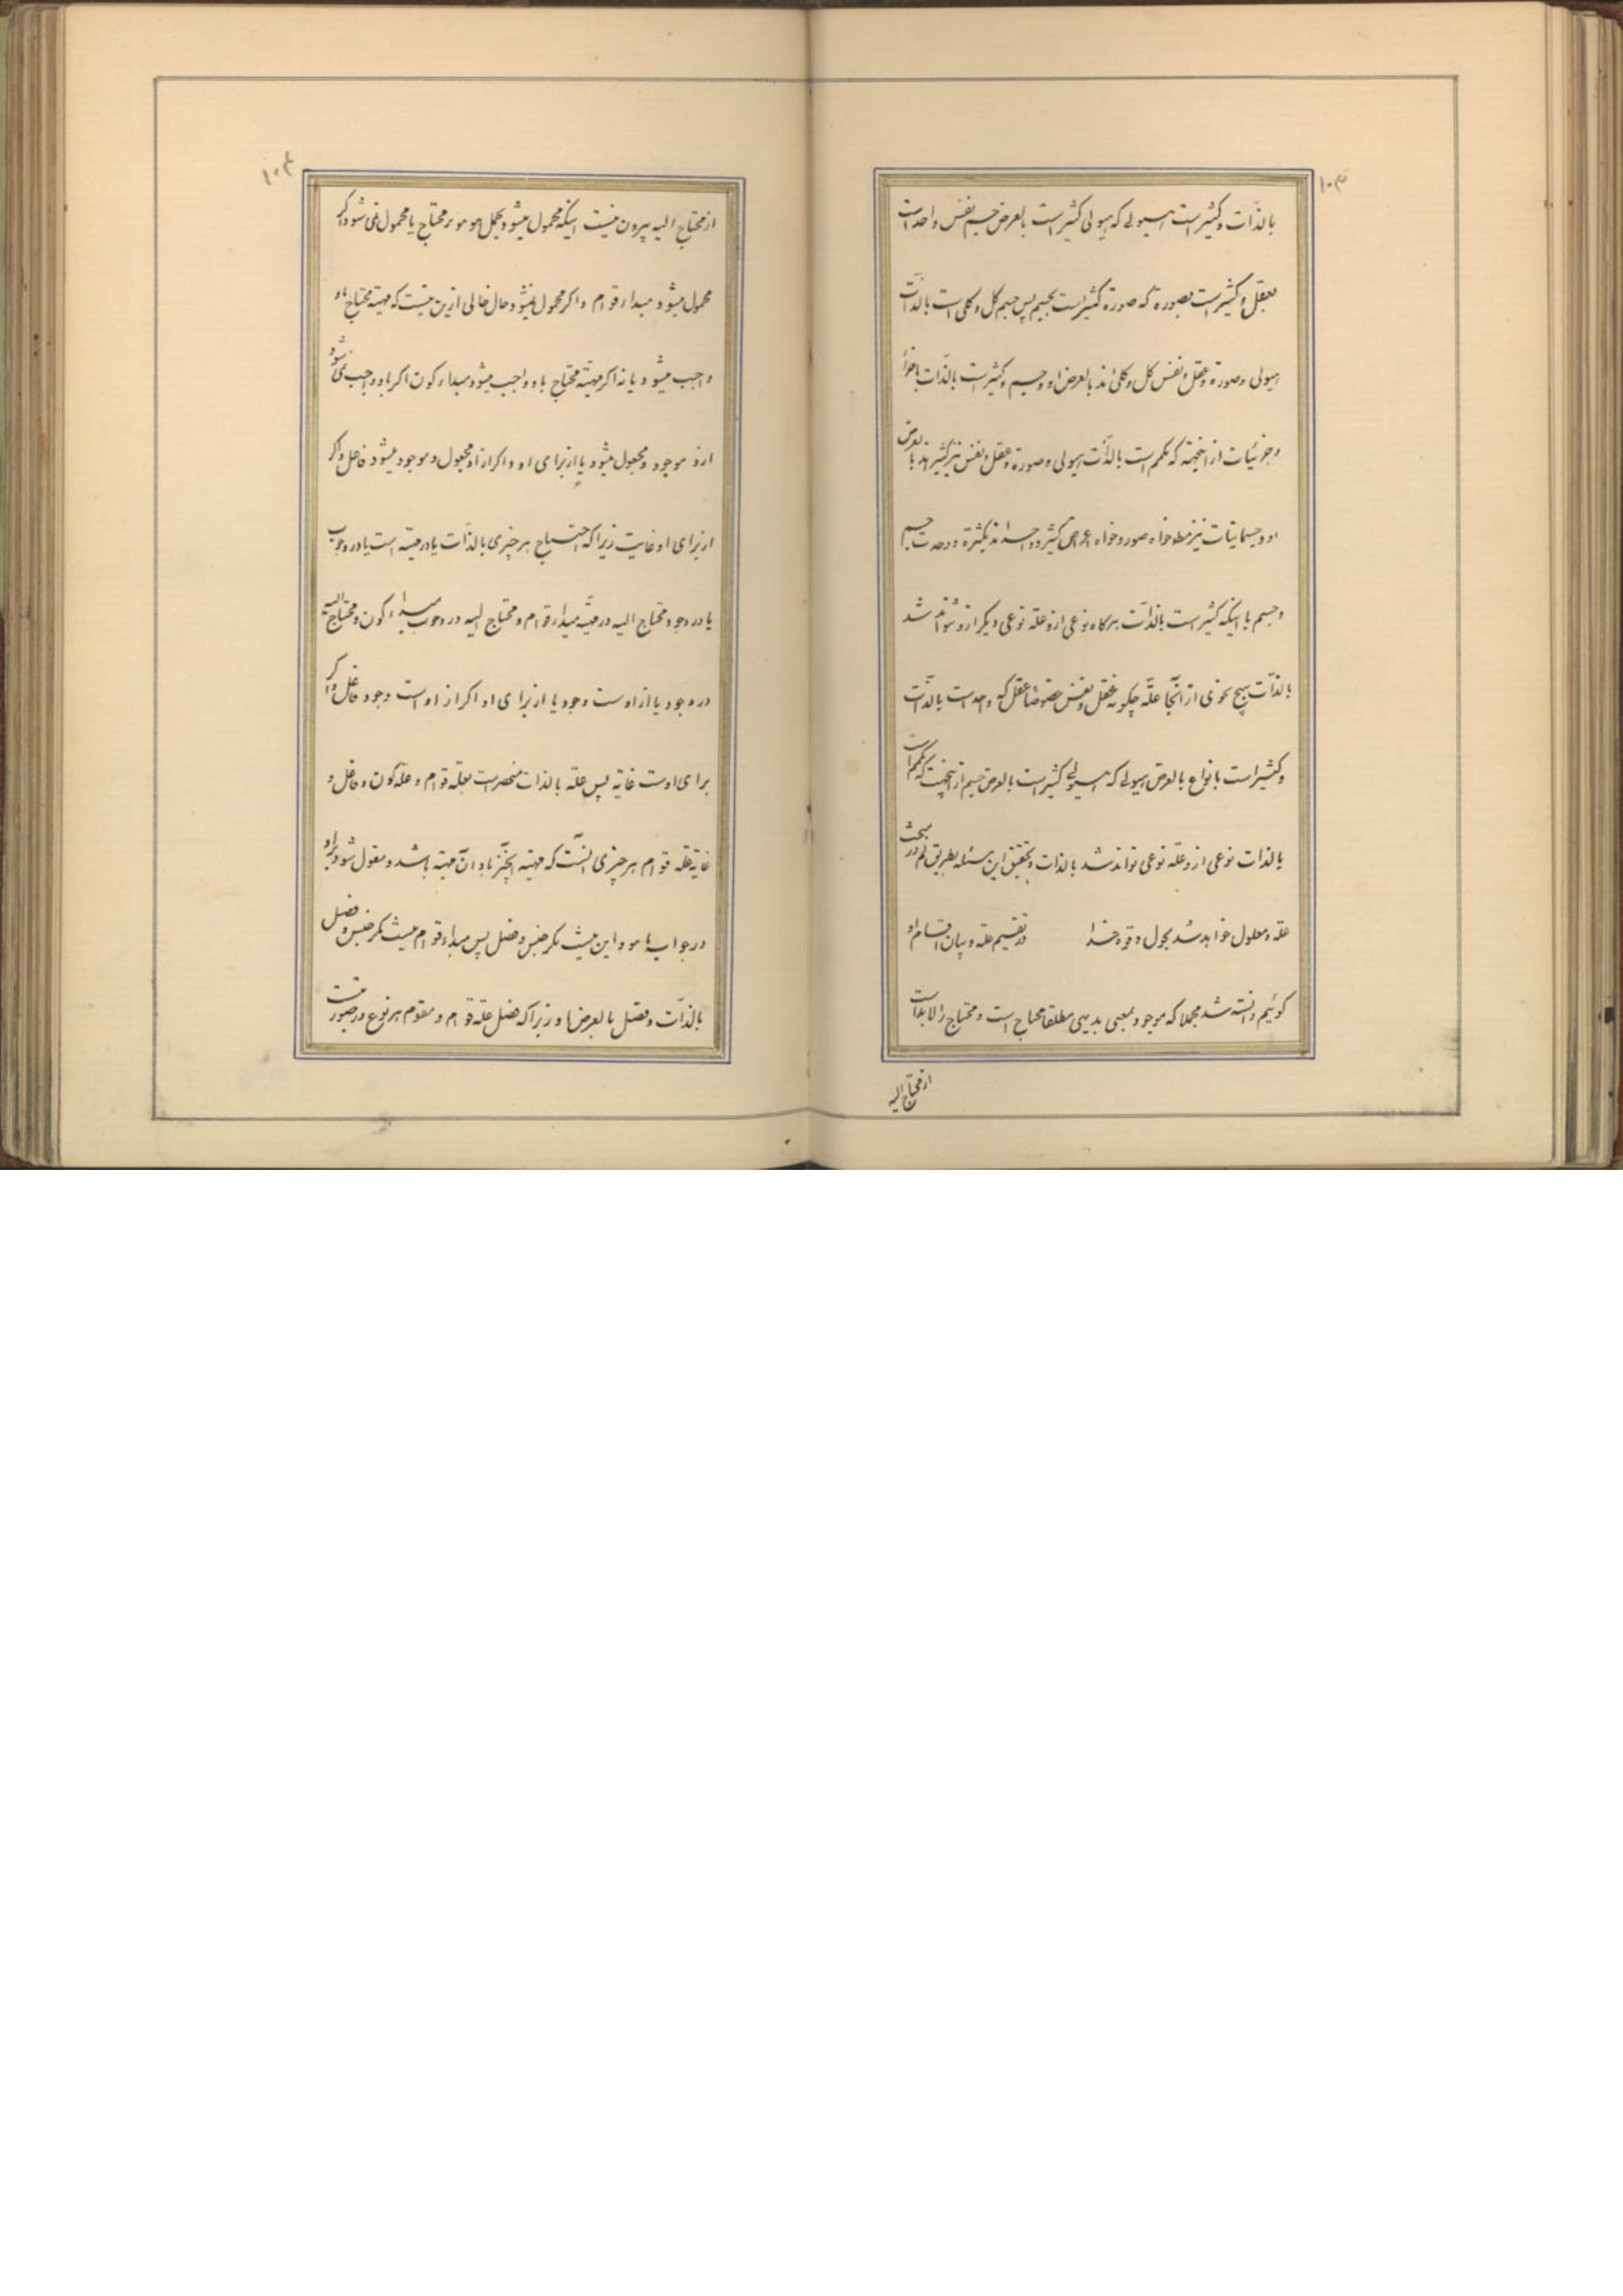 ۱۰۳
بالذات و کثیر است هیولی که هیولی کثیر است بالعرض جسم نفس واحد است
بعقل و کثیر است بصورة که صورة کثیر است بجسم پس جسم کل و کلی است بالذات
هیولی و صورة و عقل و نفس کل و کلی اند بالعرض او و جسم و کثیر است بالذات باجزا
و جزئیات از اینجهة که متکمم است بالذات هیولی و صورة و عقل و نفس نیز کثیرند بالعرض
او و جسمانیات نیز مطلقا خواه صور و خواه اعراض کثیر و واحد اند بکثرة و وحدت جسم
و جسم با اینکه کثیر است بالذات هرگاه نوعی ازو علة نوعی دیگر ازو نتواند شد
بالذات بهیچ نحوی از انحا علة چگونه عقل و نفس خصوصا عقل که واحد است بالذات
و کثیر است بانواع بالعرض هیولی که هیولی کثیر است بالعرض جسم از اینجهت که متکمم است
بالذات نوعی ازو علة نوعی تواند شد بالذات و تحقیق این مسئله بطریق لم در مبحث
علة و معلول خواهد شد بحول و قوة خدا در تقسیم علة و بیان اقسام او
گوئیم دانسته شد مجملا که موجود بمعنی بدیهی مطلقا محتاج است و محتاج را لابد است
از محتاج الیه
۱۰۴
از محتاج الیه بیرون نیست اینکه محمول میشود بحمل هو هو بر محتاج یا محمول نمی شود اگر
محمول میشود مبداء قوام و اگر محمول نمیشود حال خالی ازین نیست که مهیة محتاج باو
واجب میشود یا نه اگر مهیة محتاج باو واجب میشود مبداء کون اگر باو واجب نمی شود
ازو موجود و مجعول میشود یا از برای او و اگر ازو مجعول و موجود میشود فاعل و اگر
از برای او غایت زیرا که احتیاج هر چیزی بالذات یا در مهیة است یا در وجوب
یا در وجود محتاج الیه در مهیة مبداء قوام و محتاج الیه در وجوب مبداء کون و محتاج الیه
در وجود یا از اوست وجود یا از برای او اگر از اوست وجود فاعل و اگر
برای اوست غایة پس علة بالذات منحصر است بعلة قوام و علة کون و فاعل و
غایة علة قوام هر چیزی آنست که مهیة آنچیز باو آن مهیة باشد و مقول شود بر او
در جواب ما هو و این نیست مگر جنس و فصل پس مبداء قوام نیست مگر جنس و فصل
بالذات و فصل بالعرض او زیرا که فصل علة قوام و مقوم هر نوع در صورت